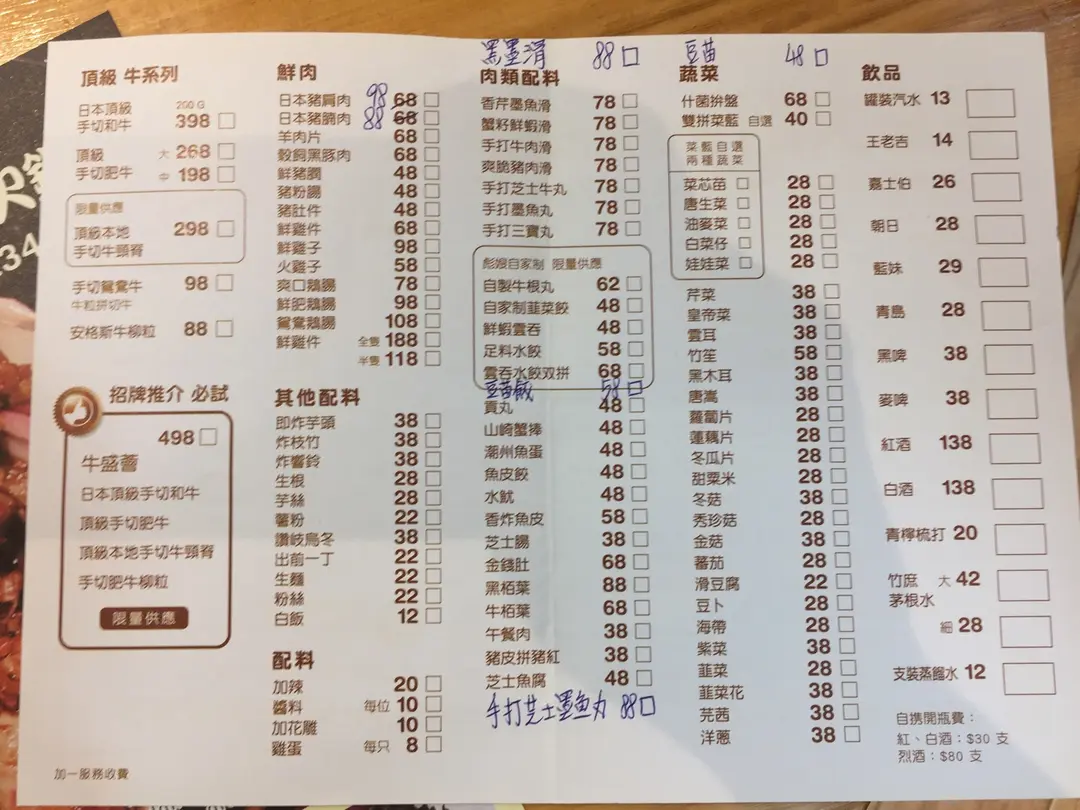 頂級 牛系列
日本頂級 200 G
手切和牛 398
頂級 大 268
手切肥牛 中 198
限量供應
頂級本地 298
手切牛頸脊
手切鴛鴦牛 98
牛粒拼切牛
安格斯牛柳粒 88
招牌推介 必試
498
牛盛薈
日本頂級手切和牛
頂級手切肥牛
頂級本地手切牛頸脊
手切肥牛柳粒
限量供應
加一服務收費
鮮肉
日本豬肩肉 98 68
日本豬腩肉 88 68
羊肉片 68
穀飼黑豚肉 68
鮮豬膶 48
豬粉腸 48
豬肚件 48
鮮雞件 68
鮮雞子 98
火雞子 58
爽口鵝腸 78
鮮肥鵝腸 98
鴛鴦鵝腸 108
鮮雞件 全隻 188
半隻 118
其他配料
即炸芋頭 38
炸枝竹 38
炸響鈴 38
生根 28
芋絲 28
薯粉 22
讚岐烏冬 38
出前一丁 22
生麵 22
粉絲 22
白飯 12
配料
加辣 20
醬料 每位 10
加花雕 10
雞蛋 每只 8
黑墨滑 88
肉類配料
香芹墨魚滑 78
蟹籽鮮蝦滑 78
手打牛肉滑 78
爽脆豬肉滑 78
手打芝士牛丸 78
手打墨魚丸 78
手打三寶丸 78
彪嫂自家制 限量供應
自製牛根丸 62
自家制韮菜餃 48
鮮蝦雲吞 48
足料水餃 58
雲吞水餃双拼 68
豆苗餃 58
貢丸 48
山崎蟹捧 48
潮州魚蛋 48
魚皮餃 48
水魷 48
香炸魚皮 58
芝士腸 38
金錢肚 68
黑栢葉 88
牛栢葉 68
午餐肉 38
豬皮拼豬紅 38
芝士魚腐 48
手打芝士墨魚丸 88
豆苗 48
蔬菜
什菌拚盤 68
雙拼菜籃 自選 40
菜籃自選
兩種蔬菜
菜芯苗 28
唐生菜 28
油麥菜 28
白菜仔 28
娃娃菜 28
芹菜 38
皇帝菜 38
雲耳 38
竹笙 58
黑木耳 38
唐嵩 38
蘿蔔片 28
蓮藕片 28
冬瓜片 28
甜粟米 28
冬菇 38
秀珍菇 28
金菇 38
蕃茄 28
滑豆腐 22
豆卜 28
海帶 28
紫菜 38
韮菜 28
韮菜花 38
芫茜 38
洋蔥 38
飲品
罐裝汽水 13
王老吉 14
嘉士伯 26
朝日 28
藍妹 29
青島 28
黑啤 38
麥啤 38
紅酒 138
白酒 138
青檸梳打 20
竹庶 大 42
茅根水
細 28
支裝蒸餾水 12
自携開瓶費：
紅、白酒：$30 支
烈酒：$80 支